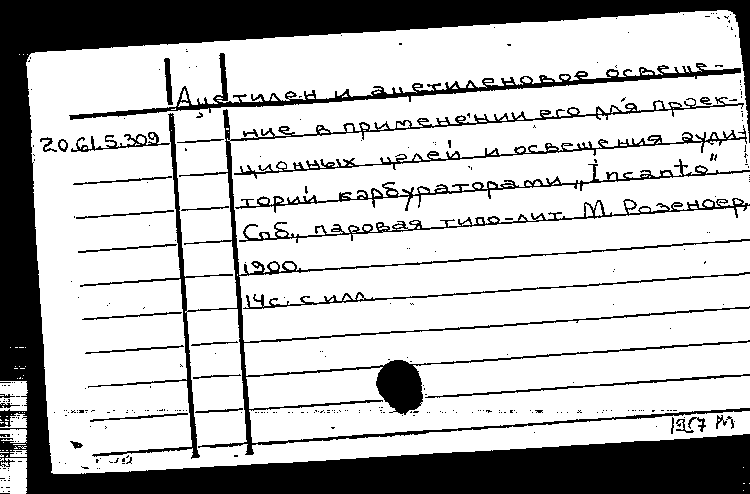 Ацетилен и ацетиленовое освеще-
20.61.5.309
ние в применении его для проек-
ционных целей и освещения ауди-
торий карбураторами „Incanto".
Спб., паровая типо-лит. М. Розеноер,
1900.
14с. с илл.
1957 М